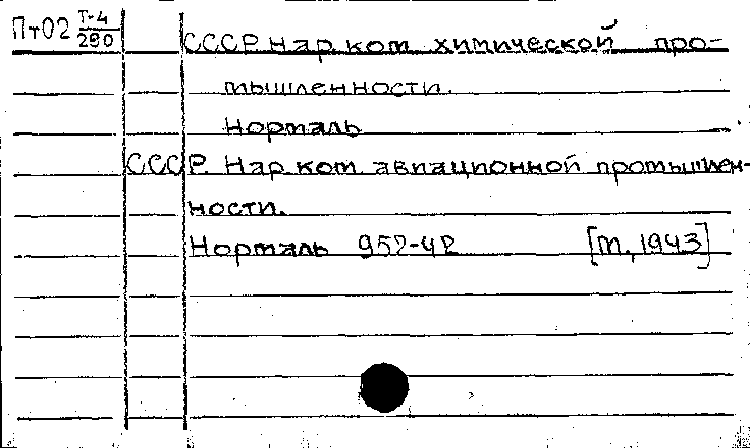 Пт02 Т-4/290
СССР. Нар. ком. химической про-
мышленности.
Нормаль
СССР. Нар. ком. авиационной промышлен-
ности.
Нормаль [М., 1943]